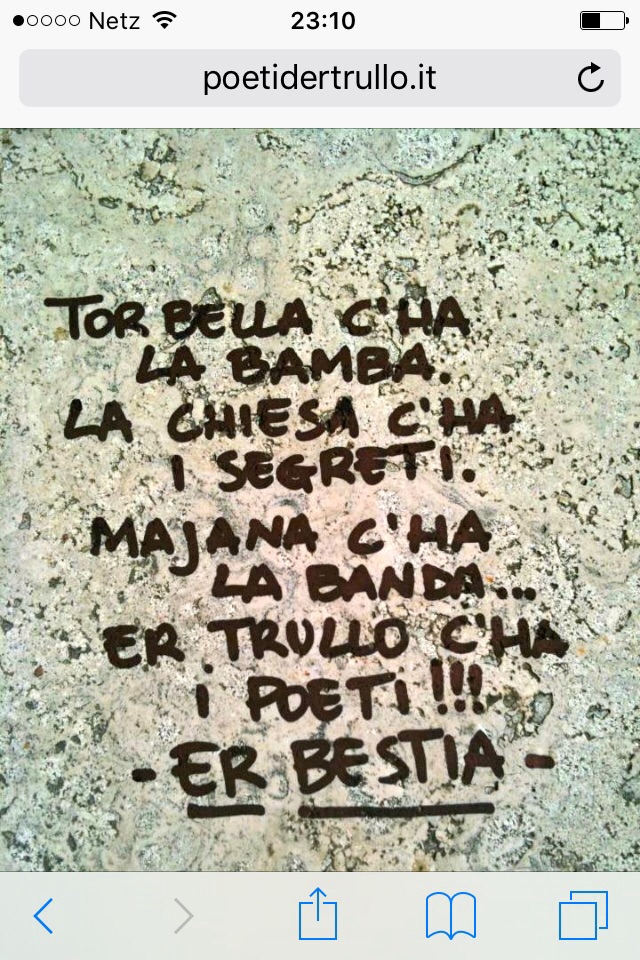 Netz 23:10
poetidertrullo.it
TOR BELLA C'HA
LA BAMBA.
LA CHIESA C'HA
I SEGRETI.
MAJANA C'HA
LA BANDA...
ER TRULLO C'HA
I POETI!!!
- ER BESTIA -